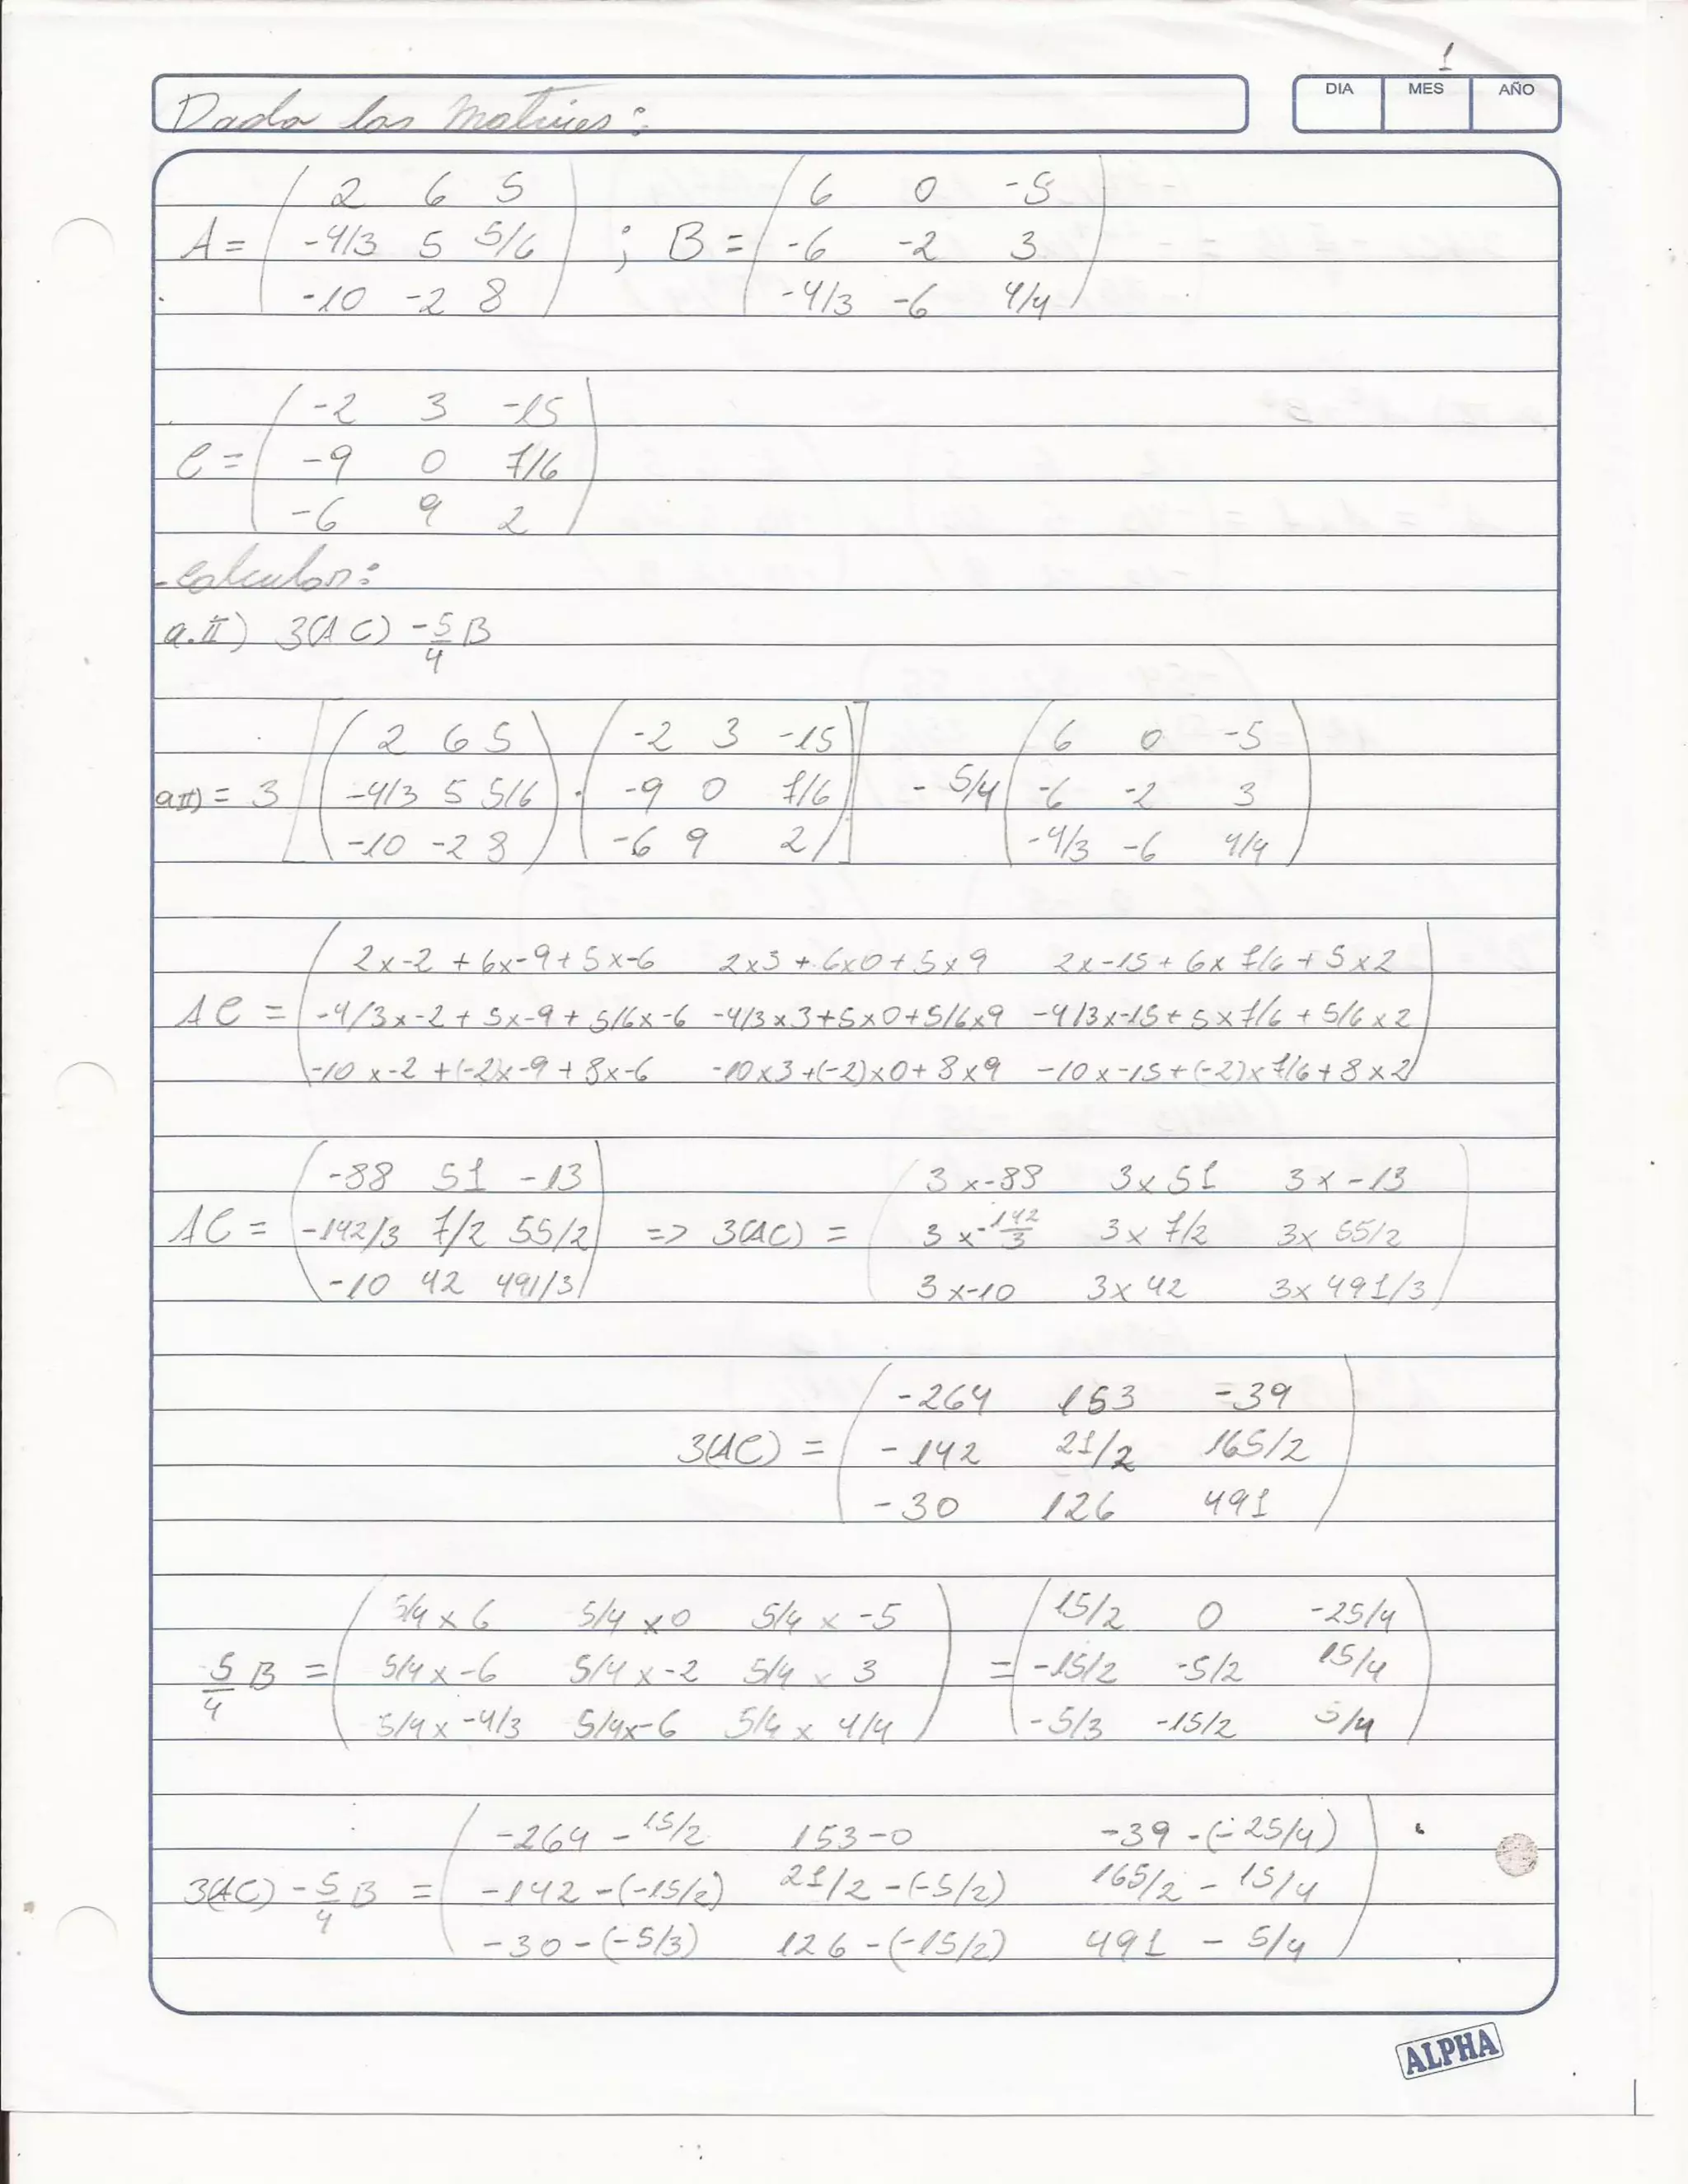 1
DIA MES AÑO
Dada las Matrices:
A = ( 2 6 5 ; -4/3 5 5/6 ; -10 -2 8 ) ; B = ( 6 0 -5 ; -6 -2 3 ; -4/3 -6 4/4 )
C = ( -2 3 -15 ; -9 0 7/6 ; -6 9 2 )
-calcular:
a.II) 3(AC) - 5/4 B
aII) = 3 [ ( 2 6 5 ; -4/3 5 5/6 ; -10 -2 8 ) . ( -2 3 -15 ; -9 0 7/6 ; -6 9 2 ) ] - 5/4 ( 6 0 -5 ; -6 -2 3 ; -4/3 -6 4/4 )
AC = ( 2x-2 + 6x-9 + 5x-6 2x3 + 6x0 + 5x9 2x-15 + 6x7/6 + 5x2
-4/3x-2 + 5x-9 + 5/6x-6 -4/3x3+5x0+5/6x9 -4/3x-15+5x7/6+5/6x2
-10x-2 +(-2)x-9 + 8x-6 -10x3+(-2)x0+8x9 -10x-15+(-2)x7/6+8x2 )
AC = ( -88 51 -13 ; -142/3 7/2 55/2 ; -10 42 491/3 ) => 3(AC) = ( 3x-88 3x51 3x-13 ; 3x-142/3 3x7/2 3x55/2 ; 3x-10 3x42 3x491/3 )
3(AC) = ( -264 153 -39 ; -142 21/2 165/2 ; -30 126 491 )
5/4 B = ( 5/4x6 5/4x0 5/4x-5 ; 5/4x-6 5/4x-2 5/4x3 ; 5/4x-4/3 5/4x-6 5/4x4/4 ) = ( 15/2 0 -25/4 ; -15/2 -5/2 15/4 ; -5/3 -15/2 5/4 )
3(AC) - 5/4 B = ( -264 - 15/2 153-0 -39-(-25/4) ; -142-(-15/2) 21/2-(-5/2) 165/2 - 15/4 ; -30-(-5/3) 126-(-15/2) 491 - 5/4 )
ALPHA